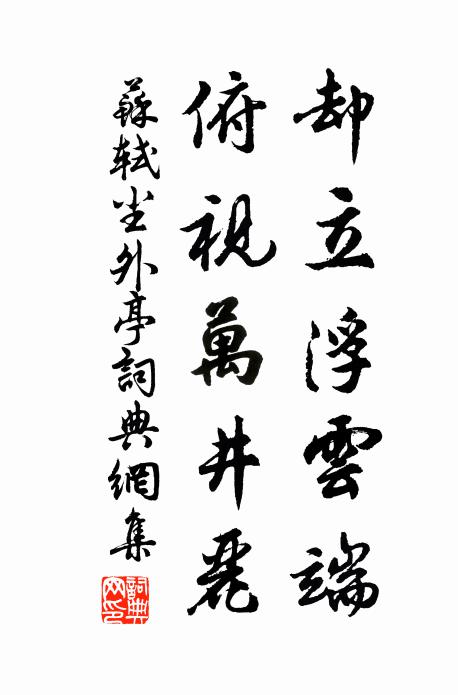 却立浮雲端
俯視萬井麗
蘇軾塵外亭詞典網集